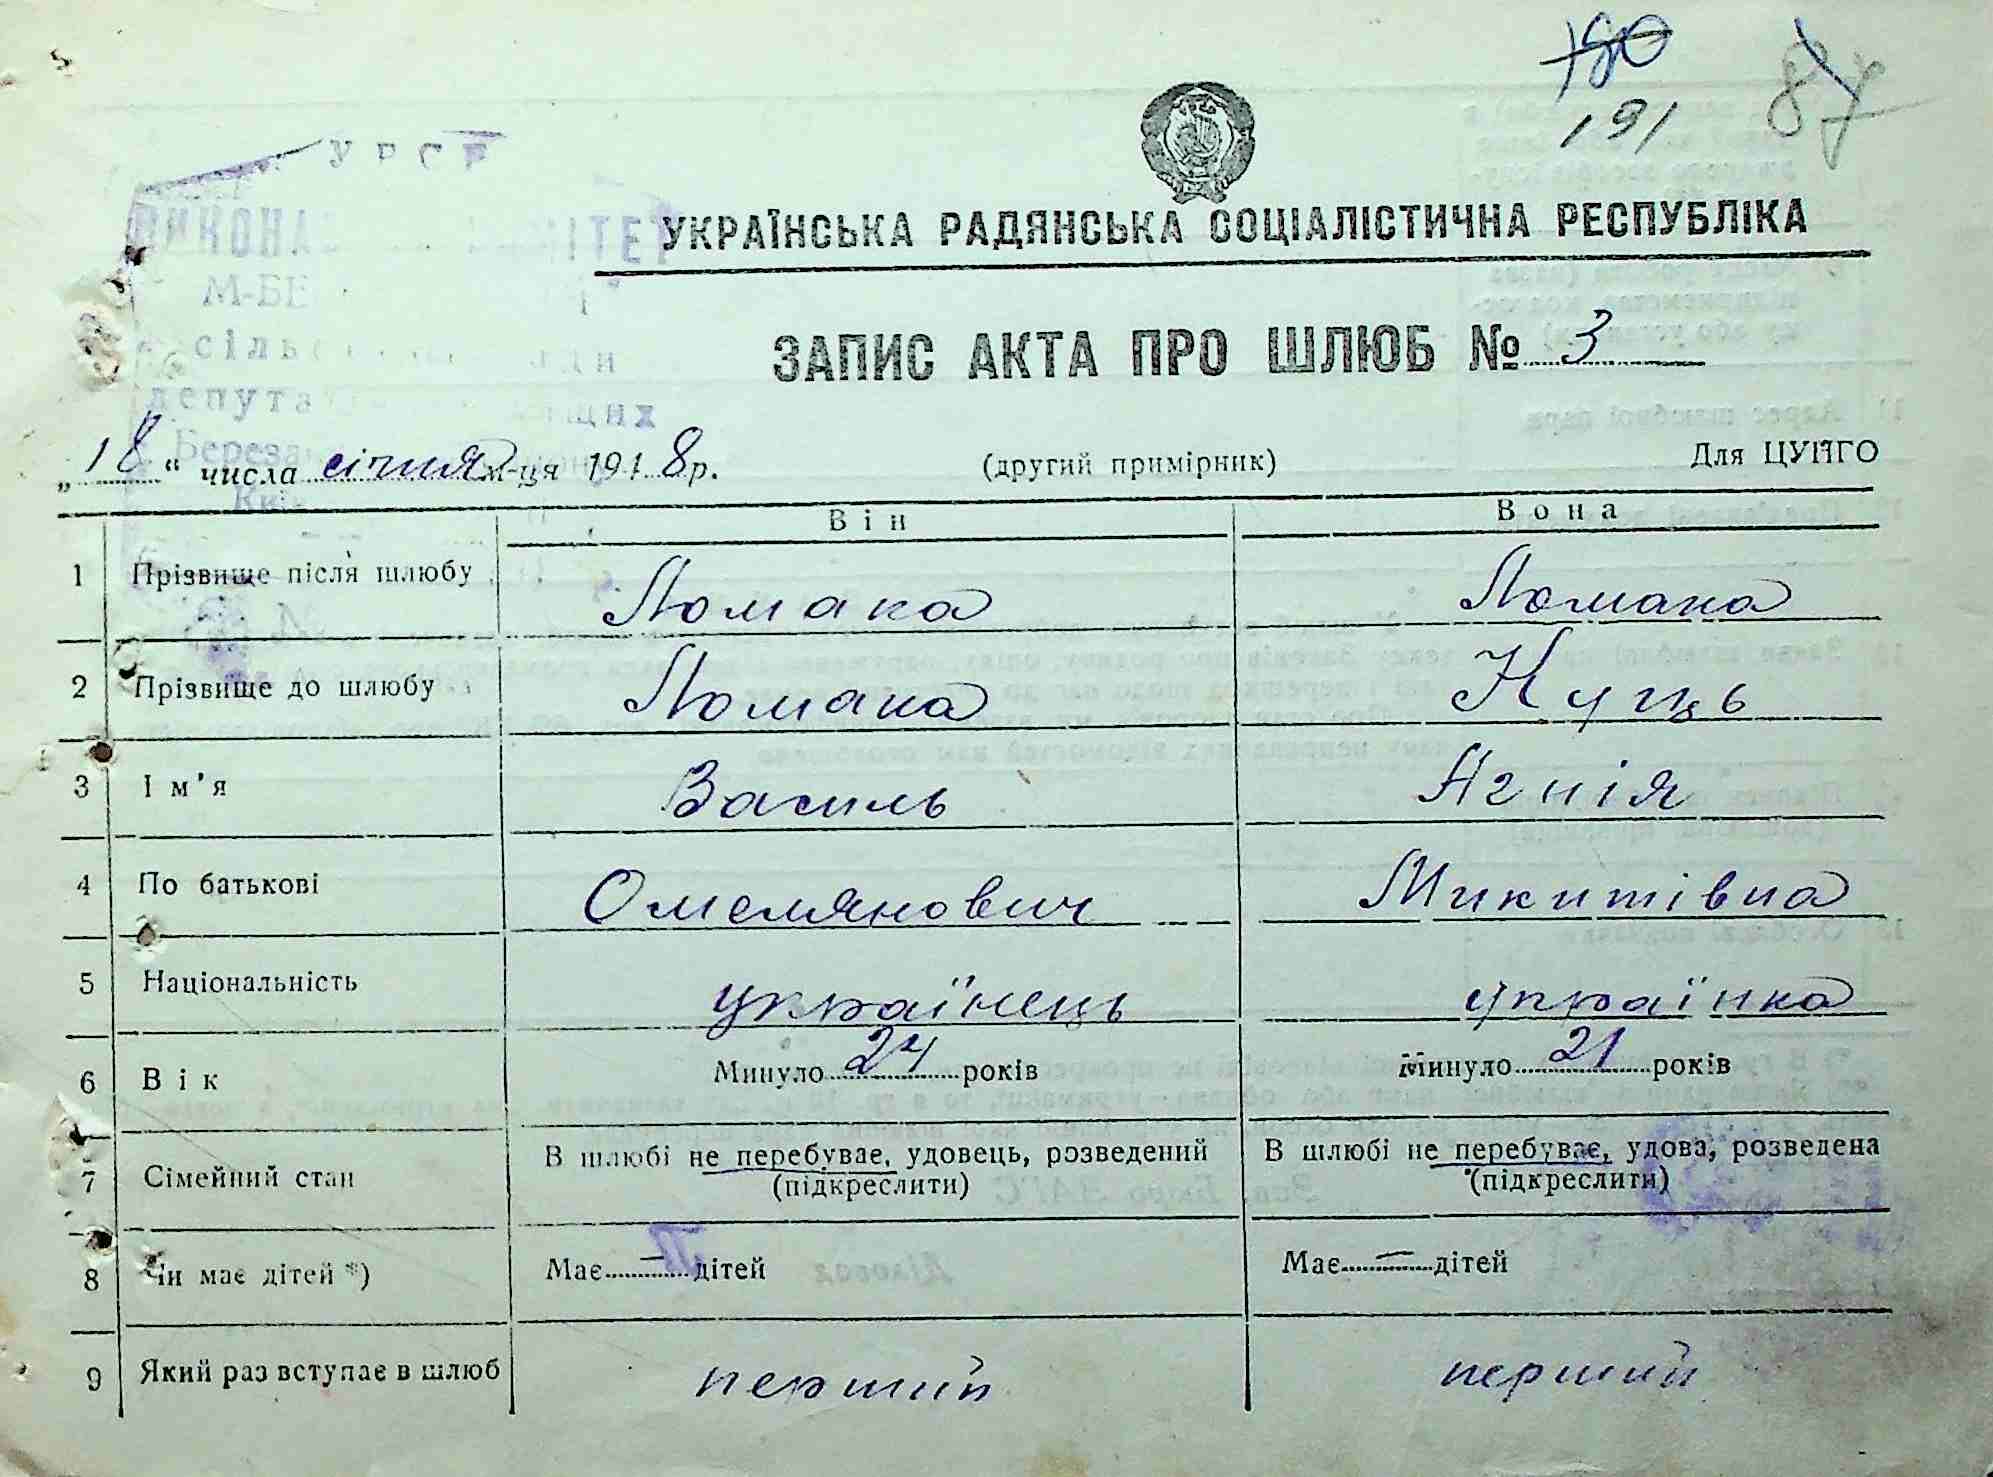 180
191
87
УРСР
УКРАЇНСЬКА РАДЯНСЬКА СОЦІАЛІСТИЧНА РЕСПУБЛІКА
ЗАПИС АКТА ПРО ШЛЮБ № 3
„18“ числа січня м-ця 1948р.
(другий примірник)
Для ЦУНГО
Він
Вона
1 Прізвище після шлюбу Ломака Ломака
2 Прізвище до шлюбу Ломака Куць
3 Ім'я Василь Агнія
4 По батькові Омелянович Микитівна
5 Національність українець українка
6 Вік Минуло 24 років Минуло 21 років
7 Сімейний стан В шлюбі не перебуває, удовець, розведений В шлюбі не перебуває, удова, розведена
(підкреслити) (підкреслити)
8 Чи має дітей *) Має — дітей Має — дітей
9 Який раз вступає в шлюб перший перший